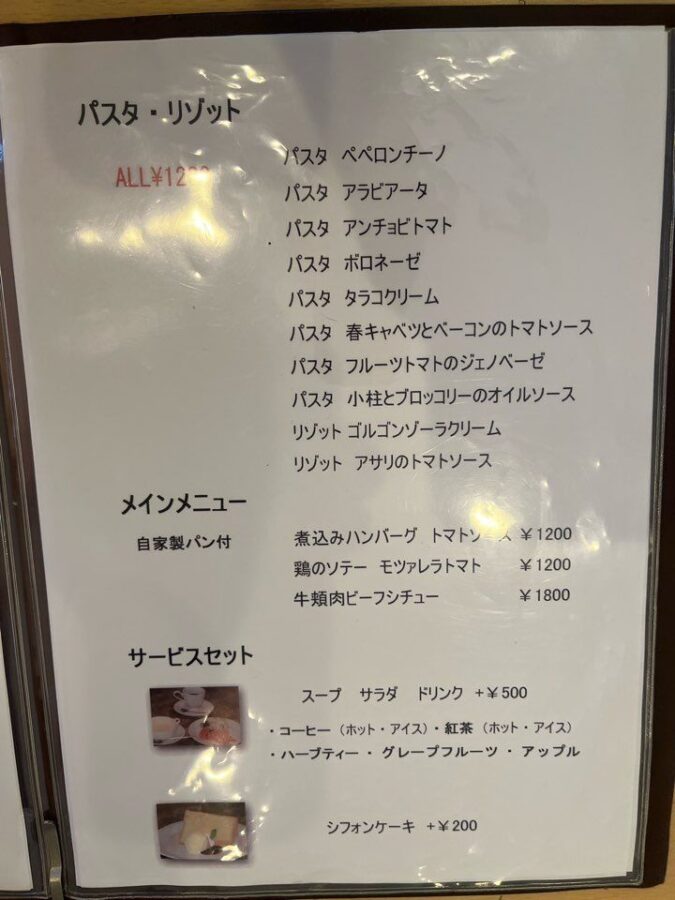 パスタ・リゾット
パスタ ペペロンチーノ
パスタ アラビアータ
パスタ アンチョビトマト
パスタ ボロネーゼ
パスタ タラコクリーム
パスタ 春キャベツとベーコンのトマトソース
パスタ フルーツトマトのジェノベーゼ
パスタ 小柱とブロッコリーのオイルソース
リゾット ゴルゴンゾーラクリーム
リゾット アサリのトマトソース
メインメニュー
自家製パン付
煮込みハンバーグ トマトソース ￥1200
鶏のソテー モツァレラトマト ￥1200
牛頬肉ビーフシチュー ￥1800
サービスセット
スープ サラダ ドリンク +￥500
・コーヒー（ホット・アイス）・紅茶（ホット・アイス）
・ハーブティー・ グレープフルーツ ・ アップル
シフォンケーキ +￥200